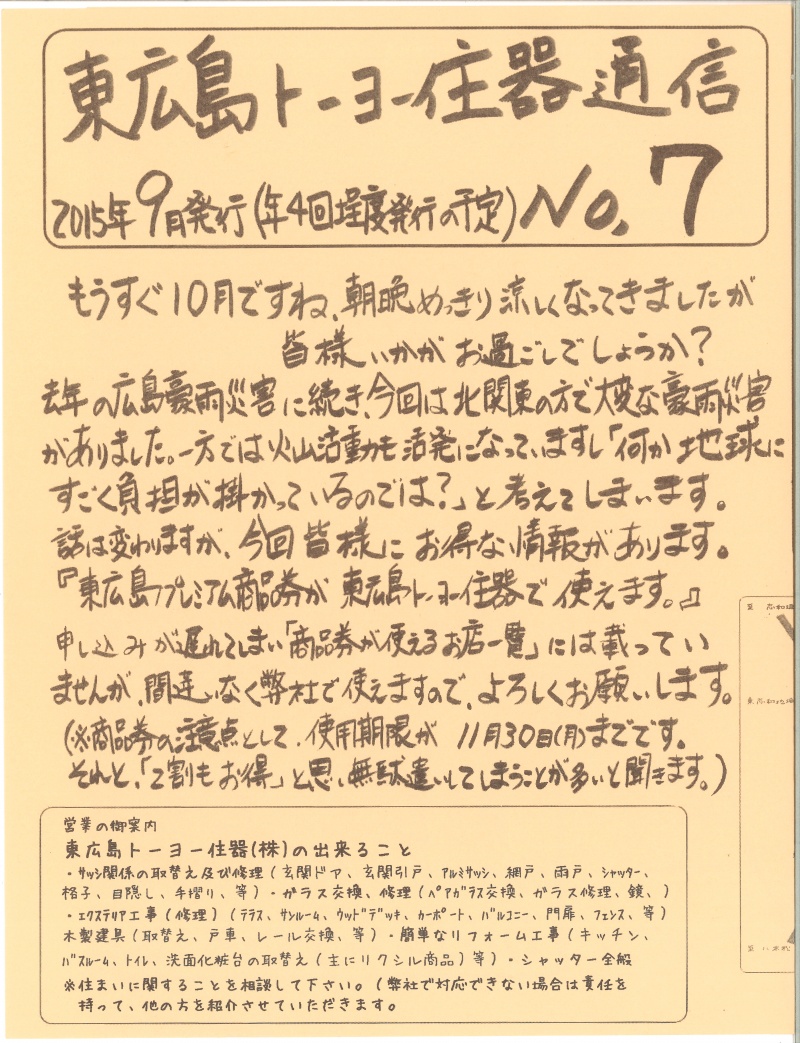 東広島トーヨー住器通信
2015年9月発行(年4回埕度発行の予定)No.7
もうすぐ10月ですね、朝晩めっきり涼しくなってきましたが
皆様いかがお過ごしでしょうか?
去年の広島豪雨災害に続き、今回は北関東の方で大変な豪雨災害
がありました。一方では火山活動も活発になっていますし「何か地球に
すごく負担が掛かっているのでは?」と考えてしまいます。
話は変わりますが、今回皆様にお得な情報があります。
『東広島プレミアム商品券が東広島トーヨー住器で使えます。』
申し込みが遅れてしまい「商品券が使えるお店一覧」には載ってい
ませんが、間違いなく弊社で使えますので、よろしくお願いします。
(※商品券の注意点として、使用期限が11月30日(月)までです。
それと、「2割もお得」と思い無駄遣いしてしまうことが多いと聞きます。)
営業の御案内
東広島トーヨー住器(株)の出来ること
・サッシ関係の取替え及び修理(玄関ドア、玄関引戸、アルミサッシ、網戸、雨戸、シャッター、
格子、目隠し、手摺り、等)・ガラス交換、修理(ペアガラス交換、ガラス修理、鏡、)
・エクステリア工事(修理)(テラス、サンルーム、ウッドデッキ、カーポート、バルコニー、門扉、フェンス、等)
木製建具(取替え、戸車、レール交換、等)・簡単なリフォーム工事(キッチン、
バスルーム、トイレ、洗面化粧台の取替え(主にリクシル商品)等)・シャッター全般
※住まいに関することを相談して下さい。(弊社で対応できない場合は責任を
持って、他の方を紹介させていただきます。